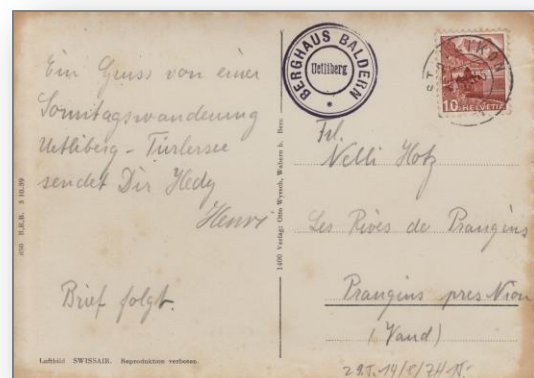 Ein Gruss von einer
Sonntagswanderung
Uetliberg - Türlersee
sendet Dir Hedy
Henri
Brief folgt.
Luftbild SWISSAIR. Reproduktion verboten.
1400 Verlag: Otto Wyrsch, Wabern b. Bern
BERGHAUS BALDERN
Uetliberg
10 HELVETIA
Frl.
Nelli Hotz
Les Rives de Prangins
Prangins pres Nion
(Vand)